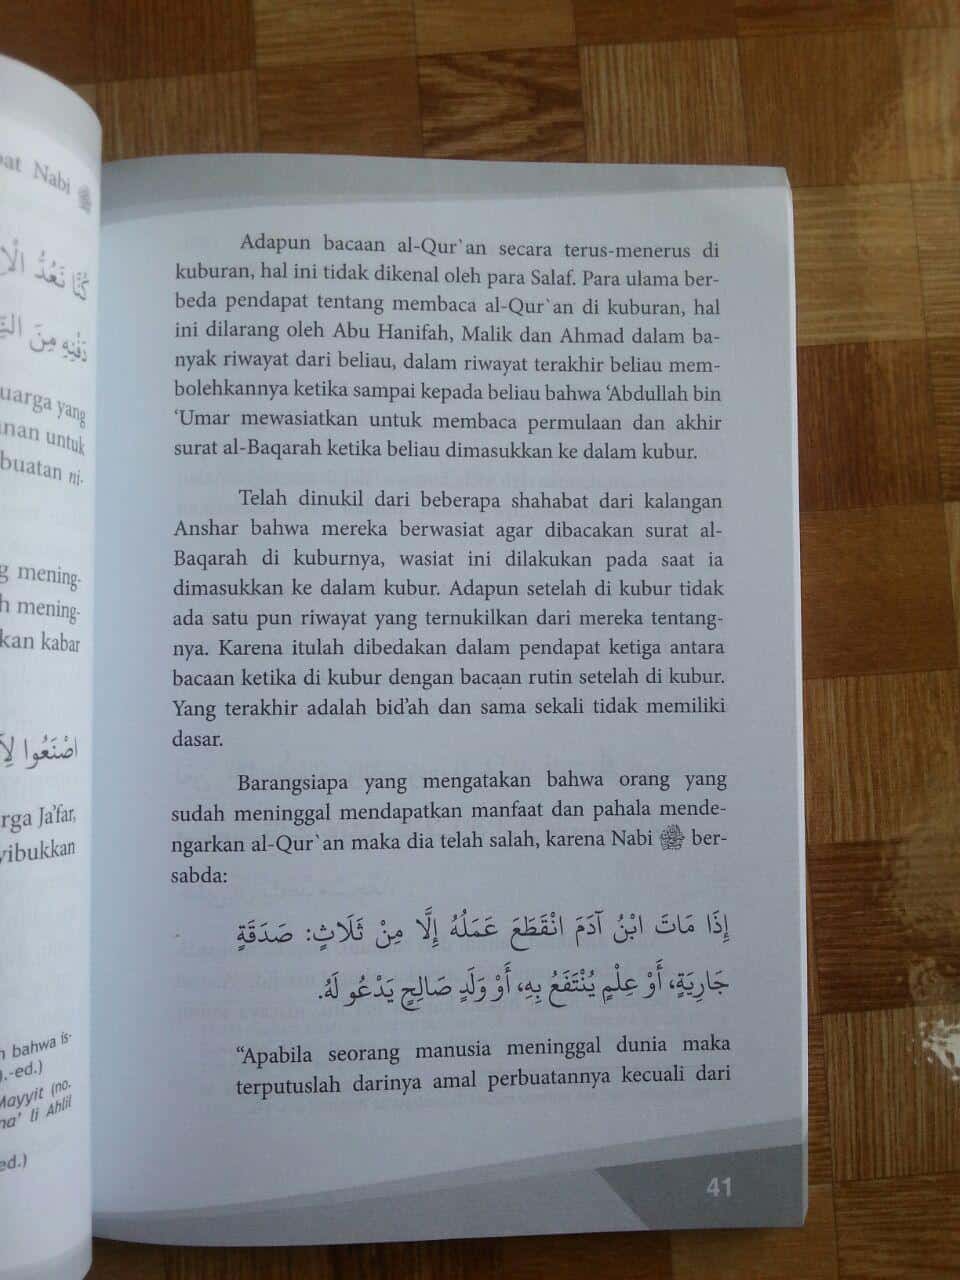 Nabi ﷺ
كُنَّا نَعُدُّ
دَفْنِهِ مِنَ
yang
untuk
buatan ni-
mening-
mening-
kan kabar
اصْنَعُوا
Ja'far,
bahwa is-
.-ed.)
Mayyit (no.
li Ahlil
ed.)
Adapun bacaan al-Qur`an secara terus-menerus di
kuburan, hal ini tidak dikenal oleh para Salaf. Para ulama ber-
beda pendapat tentang membaca al-Qur`an di kuburan, hal
ini dilarang oleh Abu Hanifah, Malik dan Ahmad dalam ba-
nyak riwayat dari beliau, dalam riwayat terakhir beliau mem-
bolehkannya ketika sampai kepada beliau bahwa ‘Abdullah bin
‘Umar mewasiatkan untuk membaca permulaan dan akhir
surat al-Baqarah ketika beliau dimasukkan ke dalam kubur.
Telah dinukil dari beberapa shahabat dari kalangan
Anshar bahwa mereka berwasiat agar dibacakan surat al-
Baqarah di kuburnya, wasiat ini dilakukan pada saat ia
dimasukkan ke dalam kubur. Adapun setelah di kubur tidak
ada satu pun riwayat yang ternukilkan dari mereka tentang-
nya. Karena itulah dibedakan dalam pendapat ketiga antara
bacaan ketika di kubur dengan bacaan rutin setelah di kubur.
Yang terakhir adalah bid'ah dan sama sekali tidak memiliki
dasar.
Barangsiapa yang mengatakan bahwa orang yang
sudah meninggal mendapatkan manfaat dan pahala mende-
ngarkan al-Qur`an maka dia telah salah, karena Nabi ﷺ ber-
sabda:
إِذَا مَاتَ ابْنُ آدَمَ انْقَطَعَ عَمَلُهُ إِلَّا مِنْ ثَلَاثٍ: صَدَقَةٍ
جَارِيَةٍ، أَوْ عِلْمٍ يُنْتَفَعُ بِهِ، أَوْ وَلَدٍ صَالِحٍ يَدْعُو لَهُ.
“Apabila seorang manusia meninggal dunia maka
terputuslah darinya amal perbuatannya kecuali dari
41